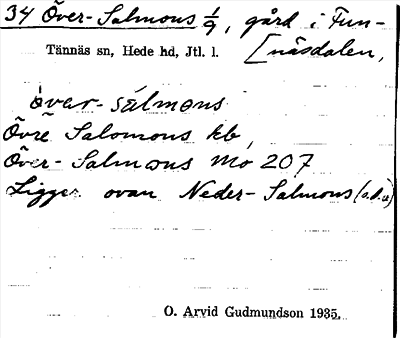 34 Över-Salmons 1/9, gård i Fun-
[näsdalen,
Tännäs sn, Hede hd, Jtl. l.
över-sálmons
Övre Salomons kb
Över-Salmons Mo 207
Ligger ovan Neder-Salmons (s.d.u)
O. Arvid Gudmundson 1935.